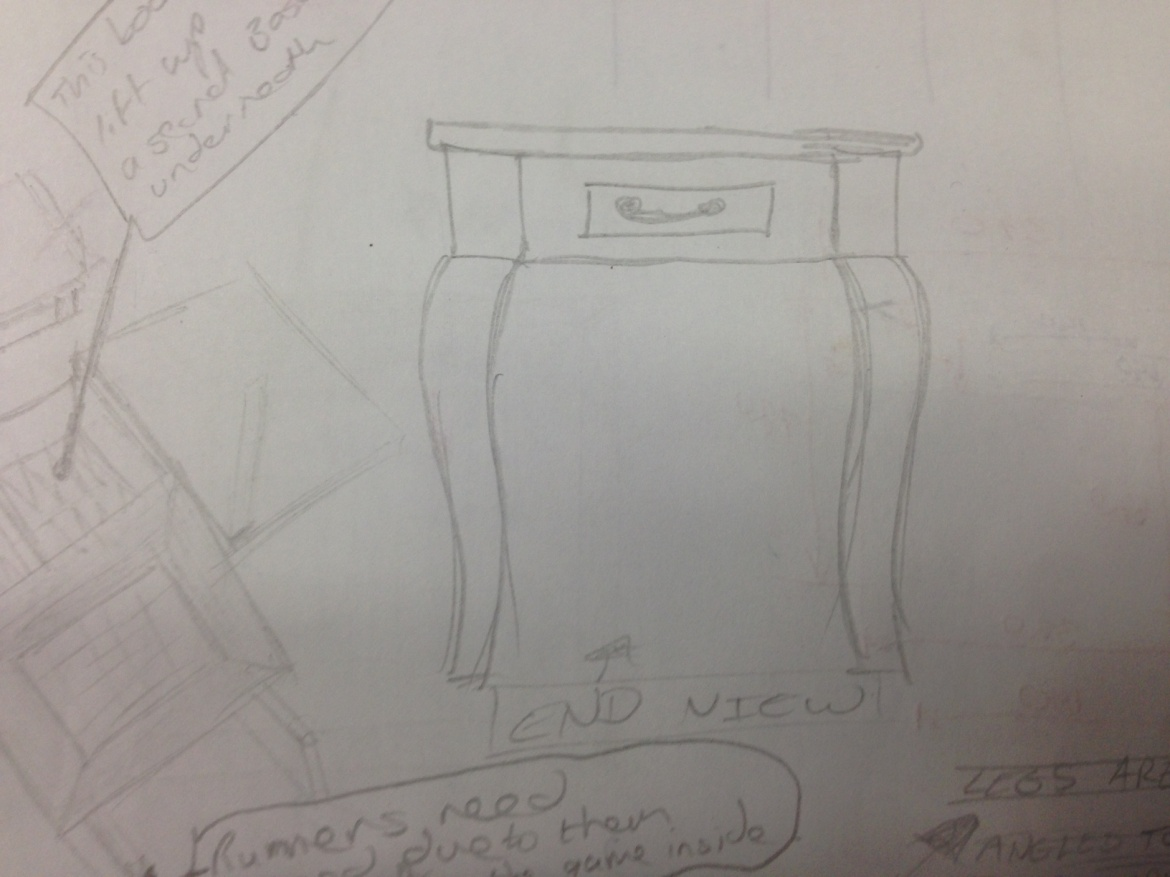 This
lift up
a second Base
underneath
END VIEW
Runners need
due to them
game inside
LEGS ARE
ANGLED TO